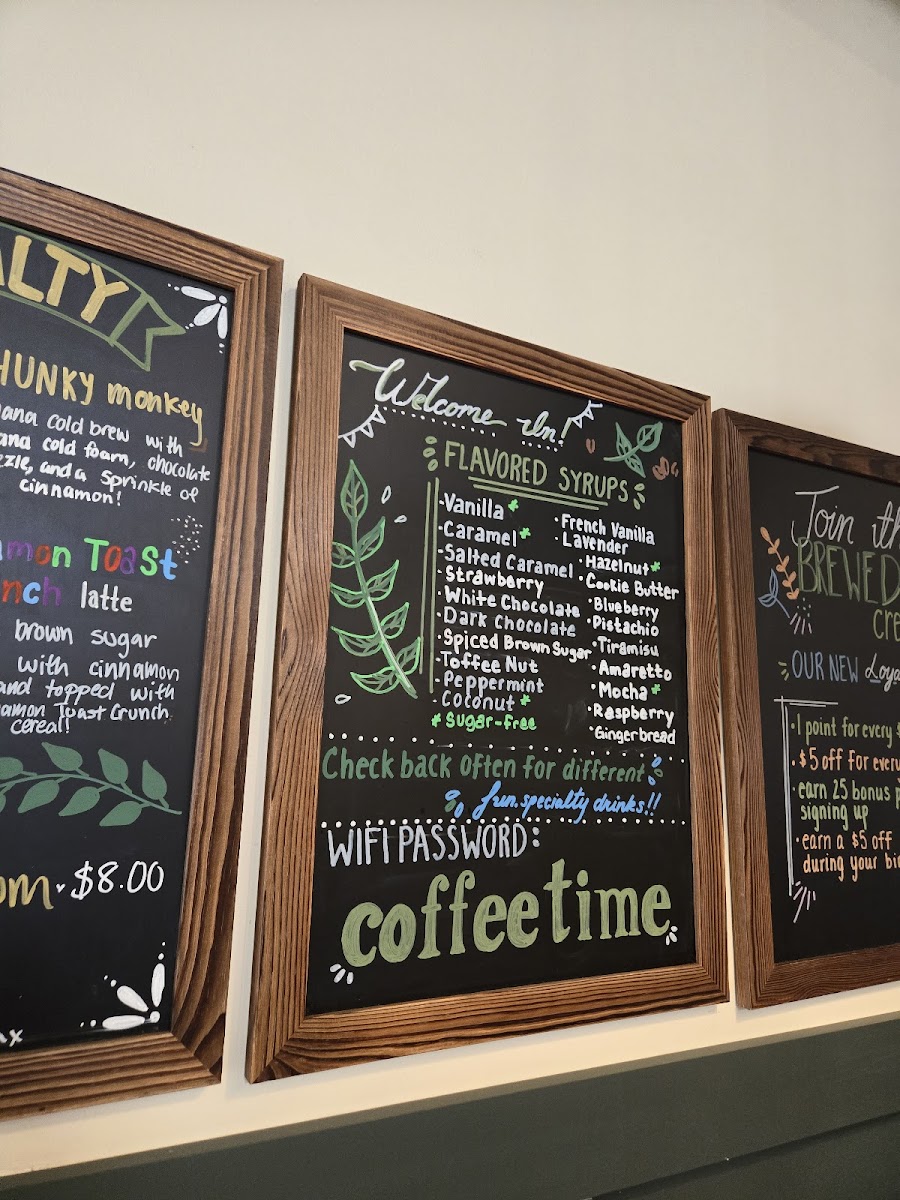 ALTY
HUNKY monkey
ana cold brew with
ana cold foam, chocolate
zzle, and a sprinkle of
cinnamon!
amon Toast
nch latte
brown sugar
with cinnamon
and topped with
amon Toast Crunch
cereal!
om $8.00
Welcome In!
FLAVORED SYRUPS
·Vanilla *
·Caramel *
·Salted Caramel
·Strawberry
·White Chocolate
·Dark Chocolate
·Spiced Brown Sugar
·Toffee Nut
·Peppermint
·Coconut *
* Sugar-free
·French Vanilla
·Lavender
·Hazelnut *
·Cookie Butter
·Blueberry
·Pistachio
·Tiramisu
·Amaretto
·Mocha *
·Raspberry
·Gingerbread
Check back often for different
fun specialty drinks!!
WIFI PASSWORD:
coffeetime
Join th
BREWED
cre
OUR NEW Loya
·1 point for every $
·$5 off for every
·earn 25 bonus p
signing up
·earn a $5 off
during your bi